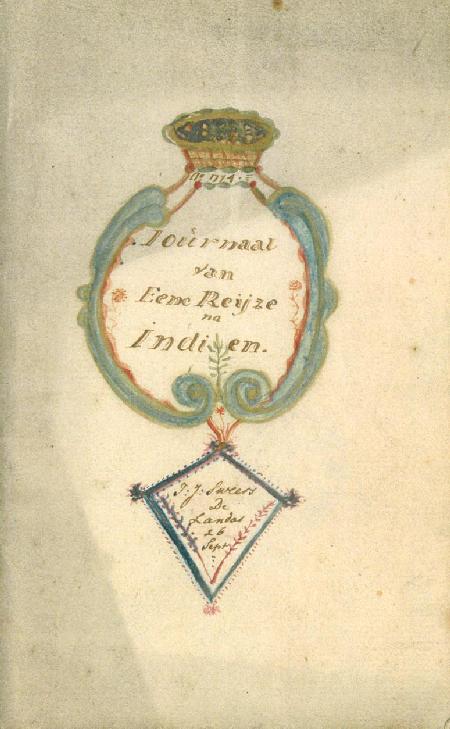 Journaal
van
Eene Reijze
na
Indien.
J: J: Sweers
De
Landas
26
Sept: